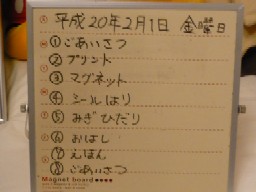 平成20年2月1日 金曜日
①ごあいさつ
②プリント
③マグネット
④シールはり
⑤みぎひだり
⑥おはし
⑦えほん
⑧ごあいさつ
Magnet board